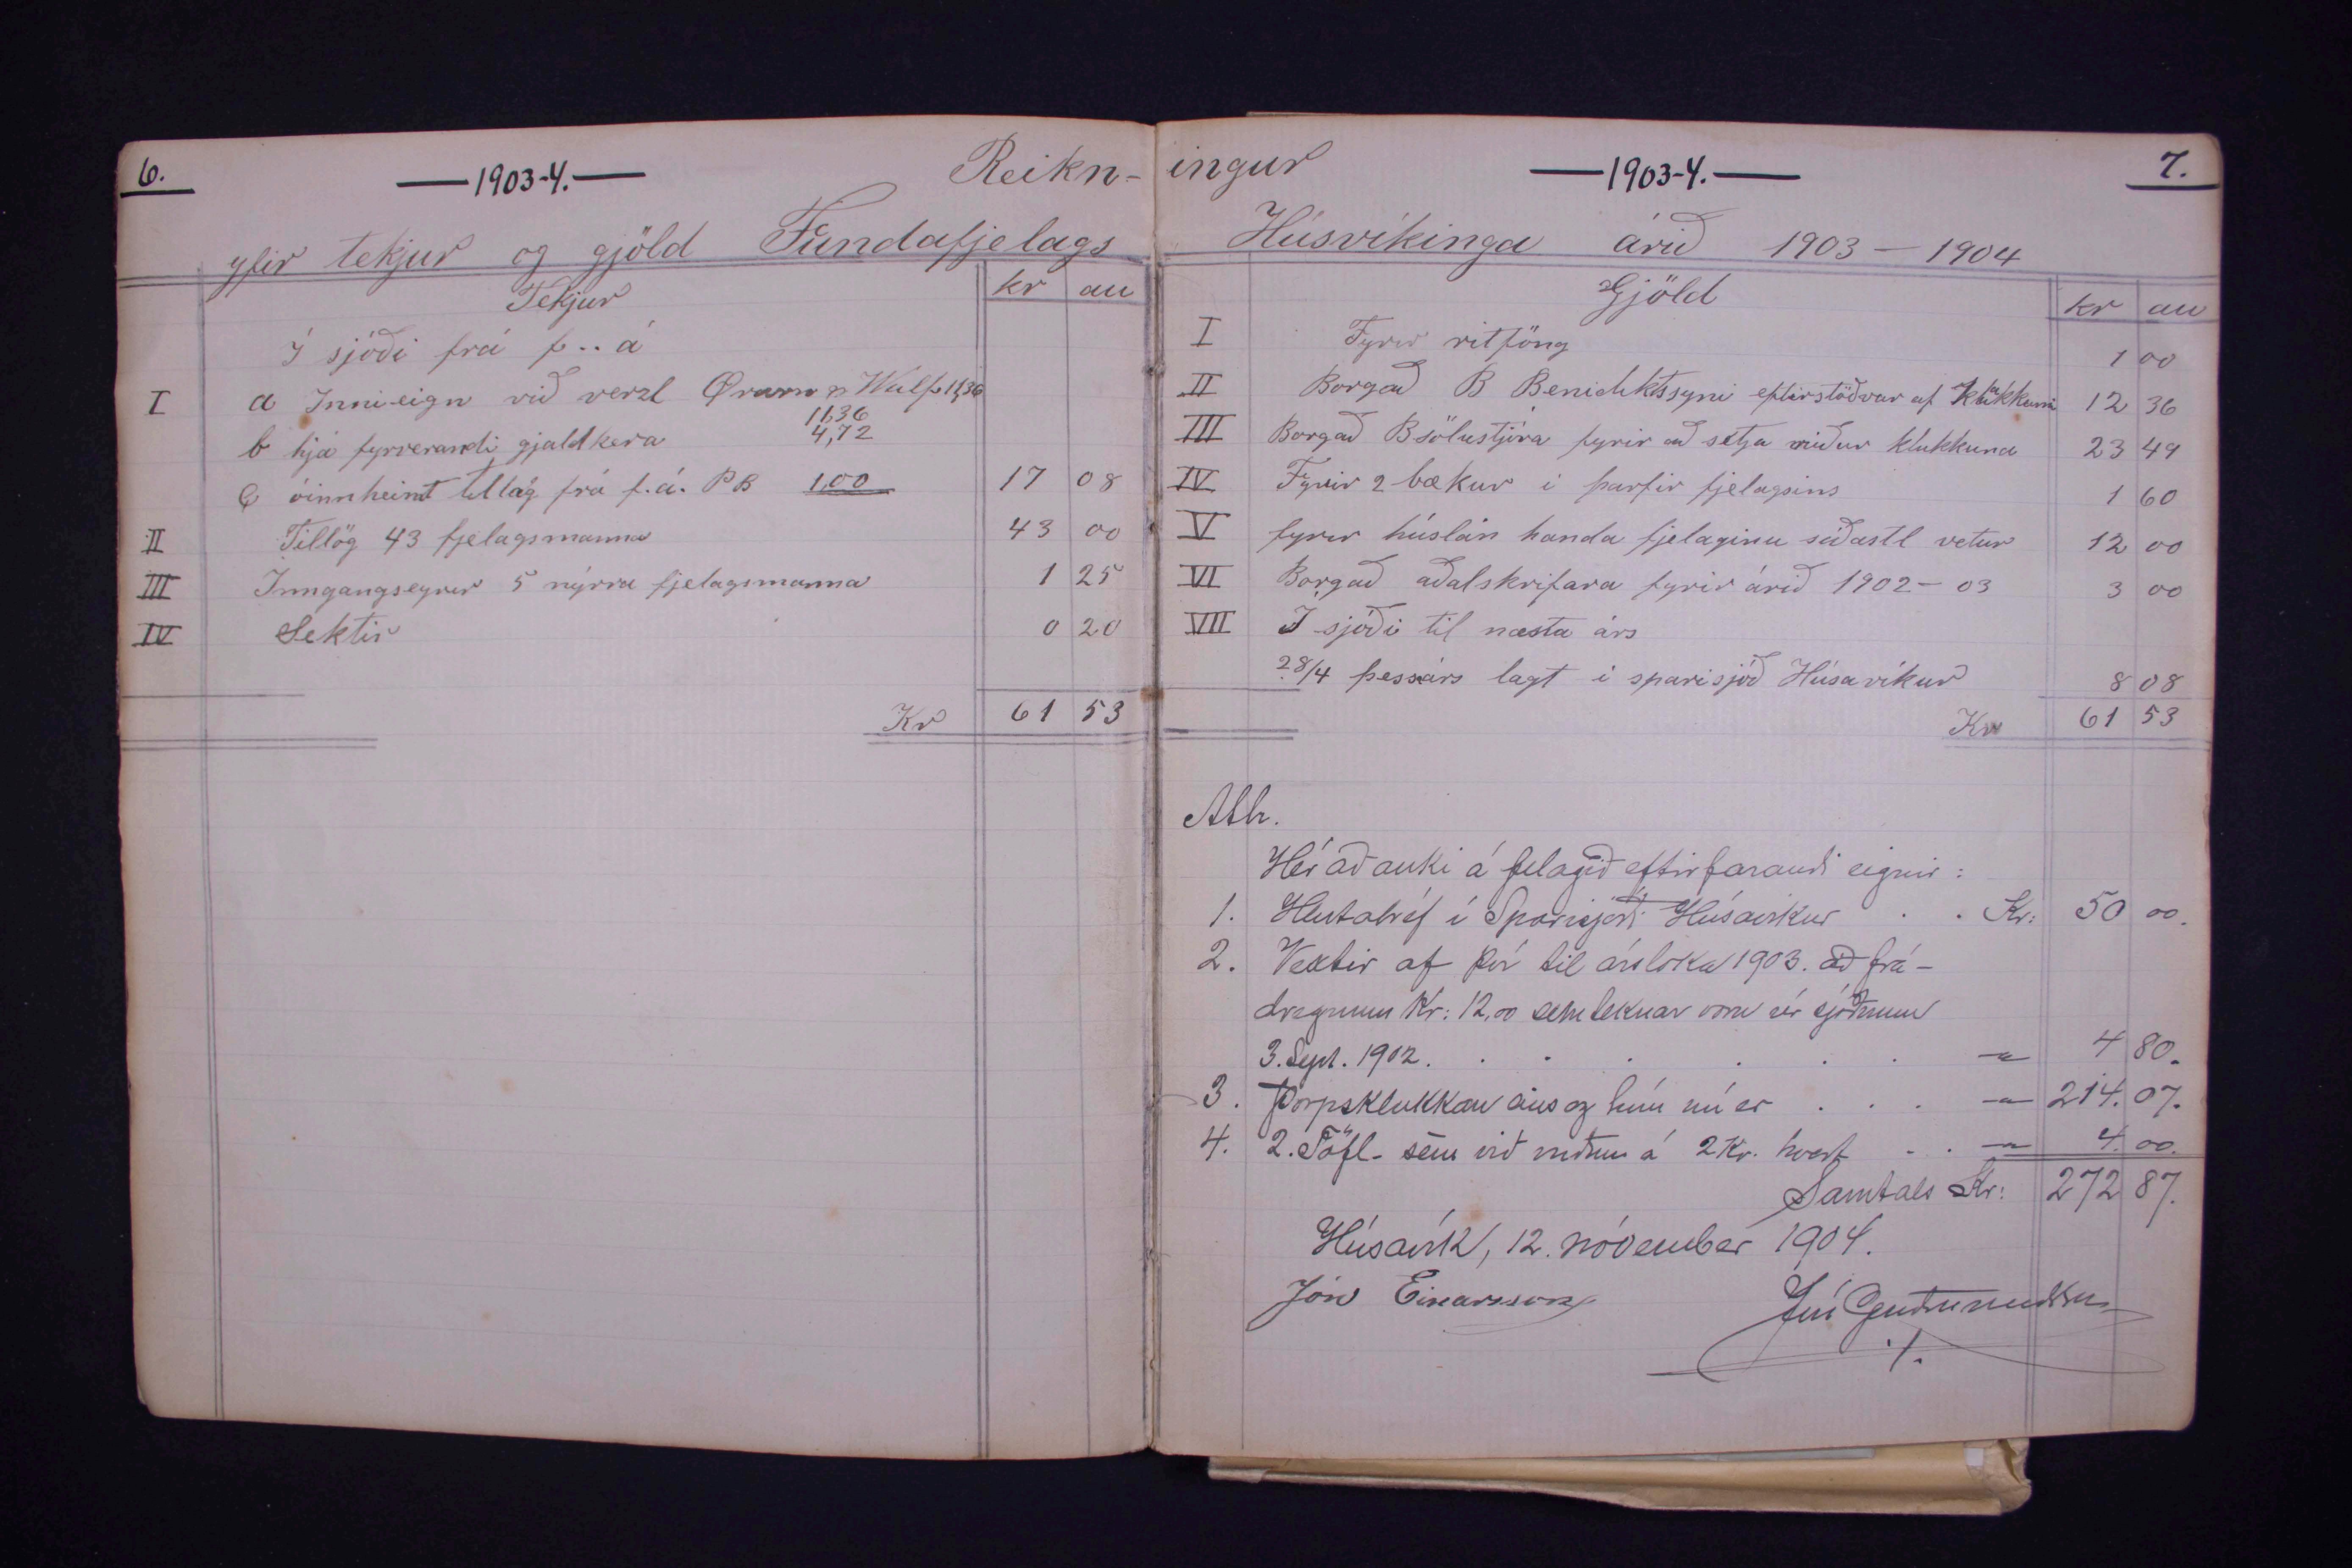 6.
—1903-4.—
Reikn-
yfir tekjur og gjöld Fundafjelags
Tekjur kr au
Í sjóði frá f..á
I a Inni-eign við verzl Ørum & Wulf 11,36
11,36
b hjá fyrverandi gjaldkera 4,72
c óinnheimt tillag frá f.á. PB 1,00 17 08
II Tillög 43 fjelagsmanna 43 00
III Inngangseyrir 5 nýrra fjelagsmanna 1 25
IV Sektir 0 20
Kr 61 53
ingur
—1903-4.—
7.
Húsvíkinga árið 1903 — 1904
Gjöld kr au
I Fyrir ritföng 1 00
II Borgað B Benidiktssyni eftirstöðvar af klukkuni 12 36
III Borgað Bsölustjóra fyrir að setja niður klukkuna 23 49
IV Fyrir 2 bækur i þarfir fjelagsins 1 60
V fyrir húslán handa fjelaginu síðastl vetur 12 00
VI Borgað aðalskrifara fyrir árið 1902 - 03 3 00
VII I sjóði til næsta árs
28/4 þessárs lagt i sparisjóð Húsavíkur 8 08
Kr 61 53
Ath.
Hér að auki á félagið eftirfarandi eignir:
1. Hlutabréf í Sparisjóði Húsavíkur . . Kr: 50 00.
2. Vextir af því til ársloka 1903. að frá-
dregnum Kr: 12,00 sem teknar voru úr sjóðnum
3. Sept. 1902. . . . . . — 4 80.
3. Þorpsklukkan eins og hún nú er . . . — 214. 07.
4. 2. Töfl- sem við metum á 2 Kr. hvert . . — 4. 00.
Samtals Kr: 272 87.
Húsavík, 12. nóvember 1904.
Jón Einarsson
Guðmundsson